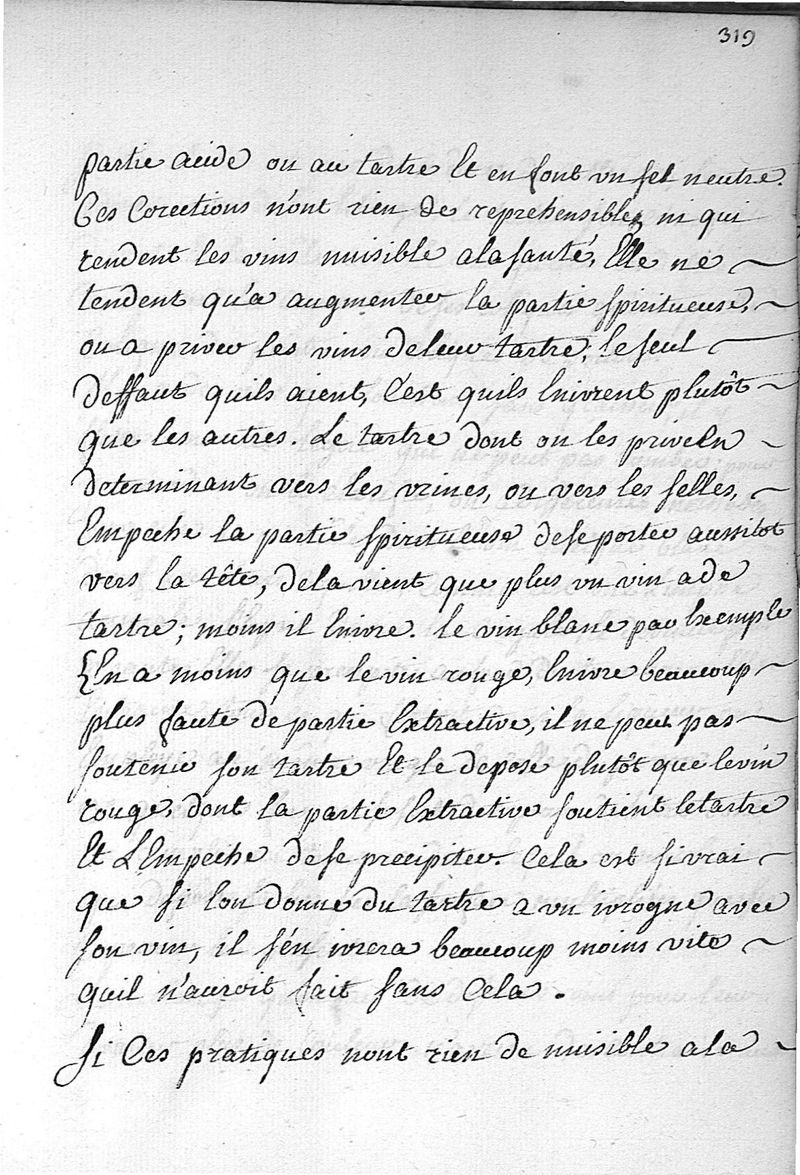 319
partie acide ou au tartre Et en font un sel neutre.
Ces Corections n'ont rien de reprehensibles, ni qui
rendent les vins nuisible ala santé, Elle ne
tendent qu'a augmenter la partie spiritueuse,
ou a priver les vins deleur tartre, le seul
deffaut quils aient, C'est quils Enivrent plutôt
que les autres. Le tartre dont on les prive En
determinant vers les urines, ou vers les selles,
Empeche la partie spiritueuse dese porter aussitot
vers la tête, dela vient que plus un vin a de
tartre; moins il Enivre. le vin blanc par Exemple
En a moins que le vin rouge, Enivre beaucoup
plus faute de partie Extractive, il ne peut pas
soutenir son tartre Et le depose plutôt que levin
rouge, dont la partie Extractive soutient letartre
Et L'Empeche dese precipiter. Cela est si vrai
que si lon donne du tartre a un ivrogne avec
son vin, il s'en ivrera beaucoup moins vite
quil n'auroit fait sans Cela.
Si Ces pratiques nont rien de nuisible ala